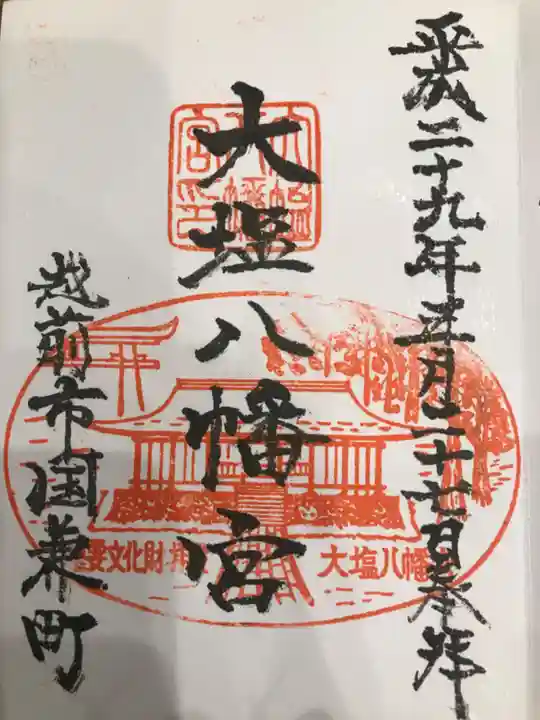 平成二十九年五月二十七日奉拝
大塩八幡宮
越前市国兼町
大塩八幡宮印
重要文化財 拝殿
大塩八幡宮